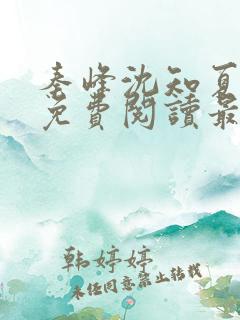 秦峰沈知夏
免費閱讀最
韩婷婷
未经同意禁止转载